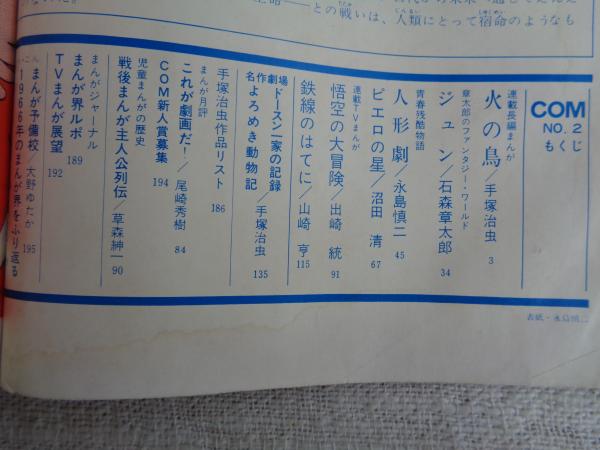 との戦いは、人類にとって宿命のようなも
COM
NO. 2
もくじ
連載長編まんが
火の鳥／手塚治虫 3
章太郎のファンタジー・ワールド
ジュン／石森章太郎 34
青春残酷物語
人形劇／永島慎二 45
ピエロの星／沼田 清 67
連載TVまんが
悟空の大冒険／出崎 統 91
鉄線のはてに／山崎 亨 115
名作劇場
ドースン一家の記録
よろめき動物記／手塚治虫 135
手塚治虫作品リスト 186
まんが月評
これが劇画だ！／尾崎秀樹 84
COM新人賞募集 194
児童まんがの歴史
戦後まんが主人公列伝／草森紳一 90
まんがジャーナル
まんが界ルポ 189
TVまんが展望 192
まんが予備校／大野ゆたか 195
1966年のまんが界をふり返る
表紙・永島慎二